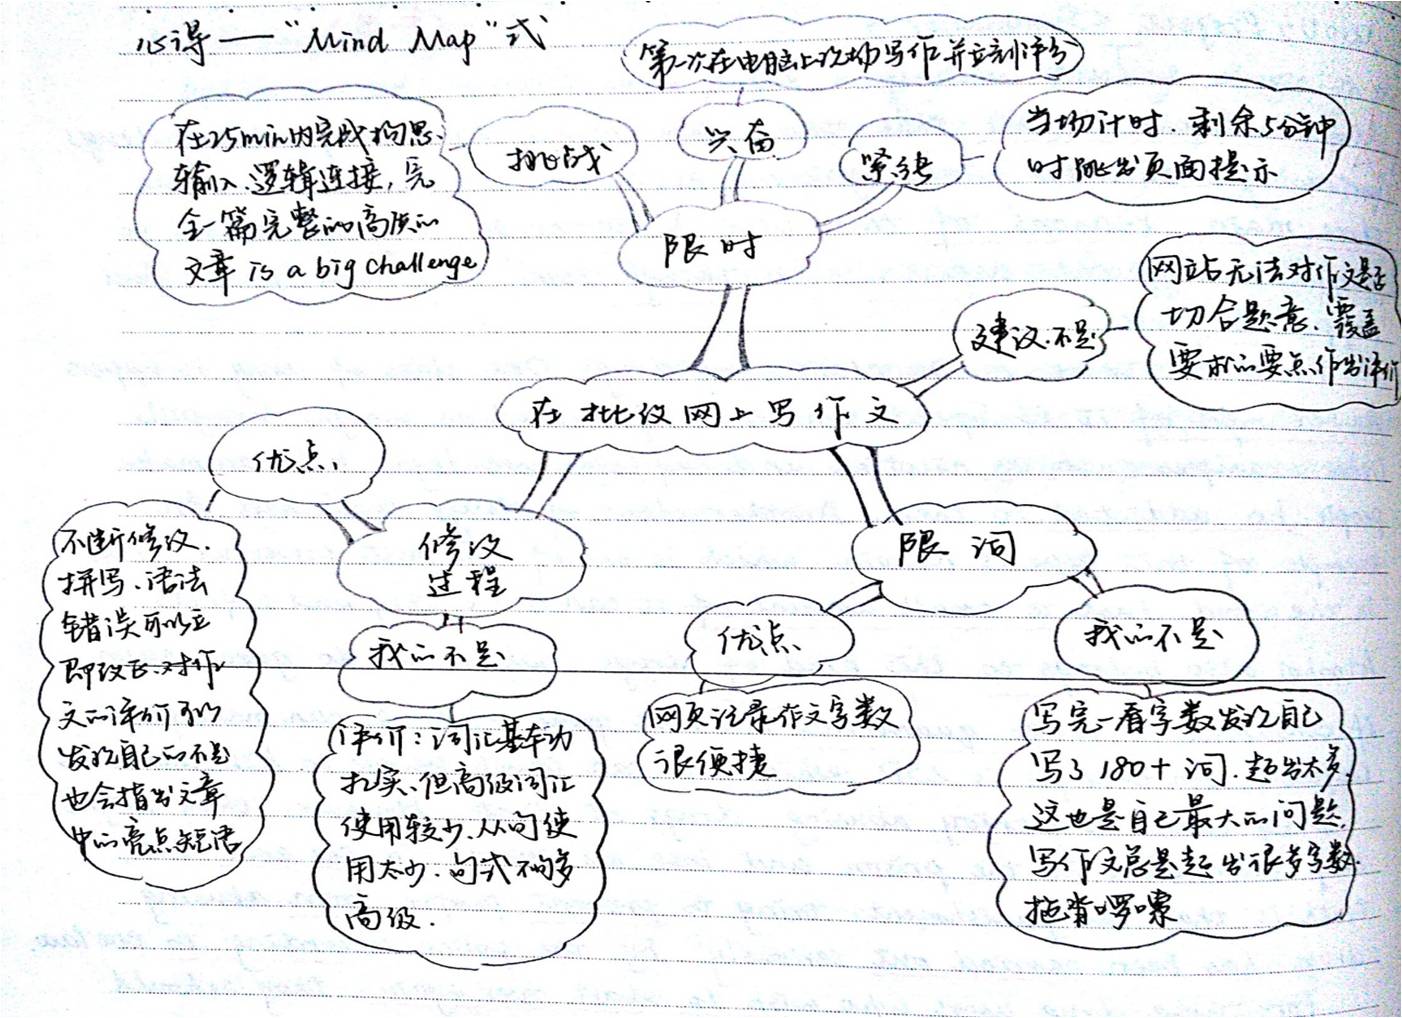 心得——"Mind Map"式
第一次在电脑上现场写作并立刻评分
在25min内完成构思、
输入、逻辑连接,完
全一篇完整的高质的
文章 is a big challenge
挑战
兴奋
紧张
当场计时.剩余5分钟
时跳出页面提示
限时
网站无法对作文是否
切合题意、覆盖
要求的要点作出评价
建议.不足
在批改网上写作文
优点、
修改
过程
限词
不断修改.
拼写、语法
错误可以立
即改正.对作
文的评价可以
发现自己的不足
也会指出文章
中的亮点短语
我的不足
评价:词汇基本功
扎实、但高级词汇
使用较少.从句使
用太少.句式不够多
高级.
优点
网页记录作文字数
很便捷
我的不足
写完一看字数发现自己
写了180+词.超出太多.
这也是自己最大的问题.
写作文总是超出很多字数.
拖沓啰嗦